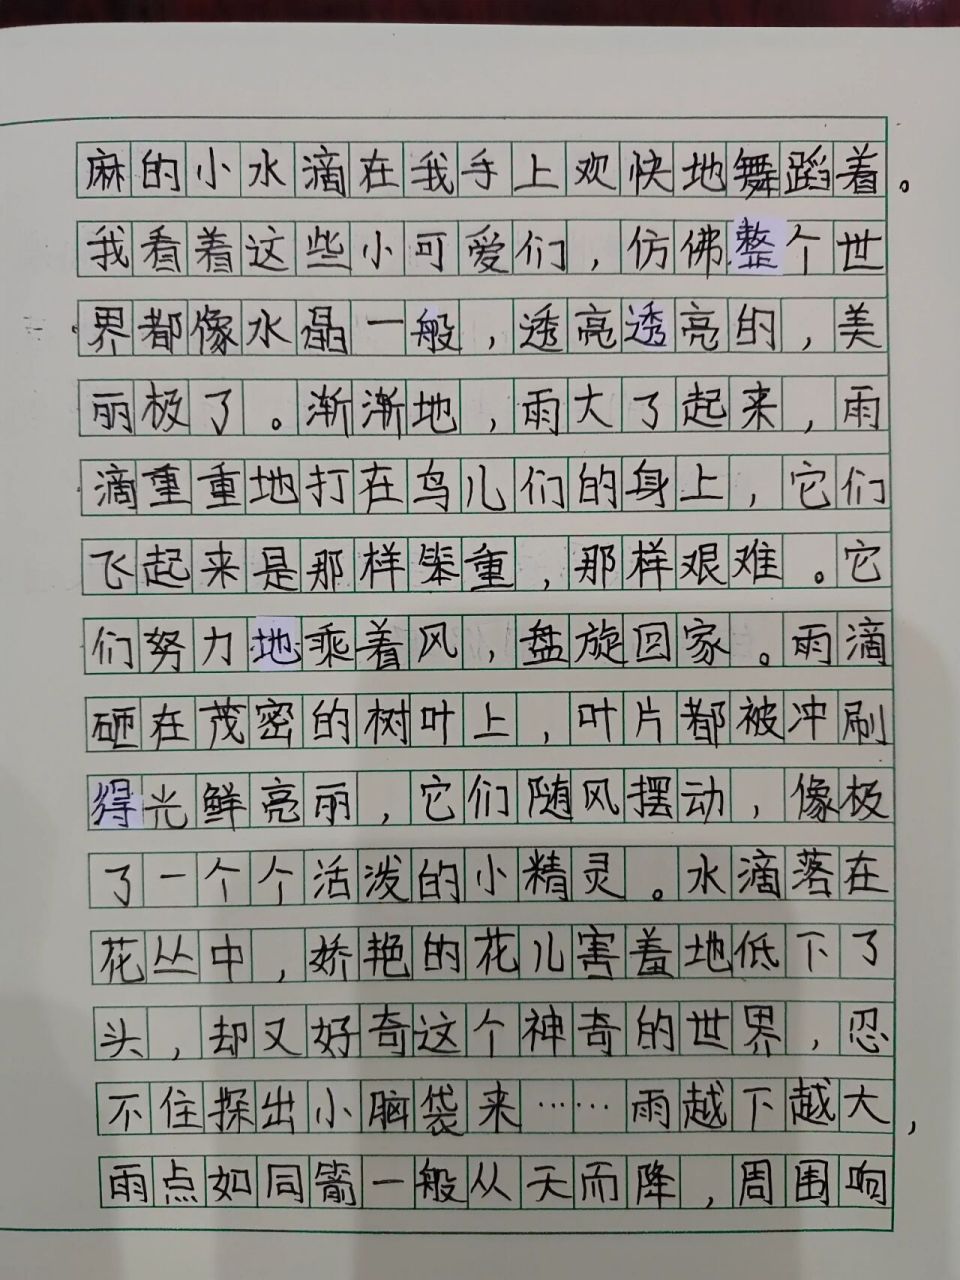 麻的小水滴在我手上欢快地舞蹈着。
我看着这些小可爱们，仿佛整个世
界都像水晶一般，透亮透亮的，美
丽极了。渐渐地，雨大了起来，雨
滴重重地打在鸟儿们的身上，它们
飞起来是那样笨重，那样艰难。它
们努力地乘着风，盘旋回家。雨滴
砸在茂密的树叶上，叶片都被冲刷
得光鲜亮丽，它们随风摆动，像极
了一个个活泼的小精灵。水滴落在
花丛中，娇艳的花儿害羞地低下了
头，却又好奇这个神奇的世界，忍
不住探出小脑袋来……雨越下越大，
雨点如同箭一般从天而降，周围响